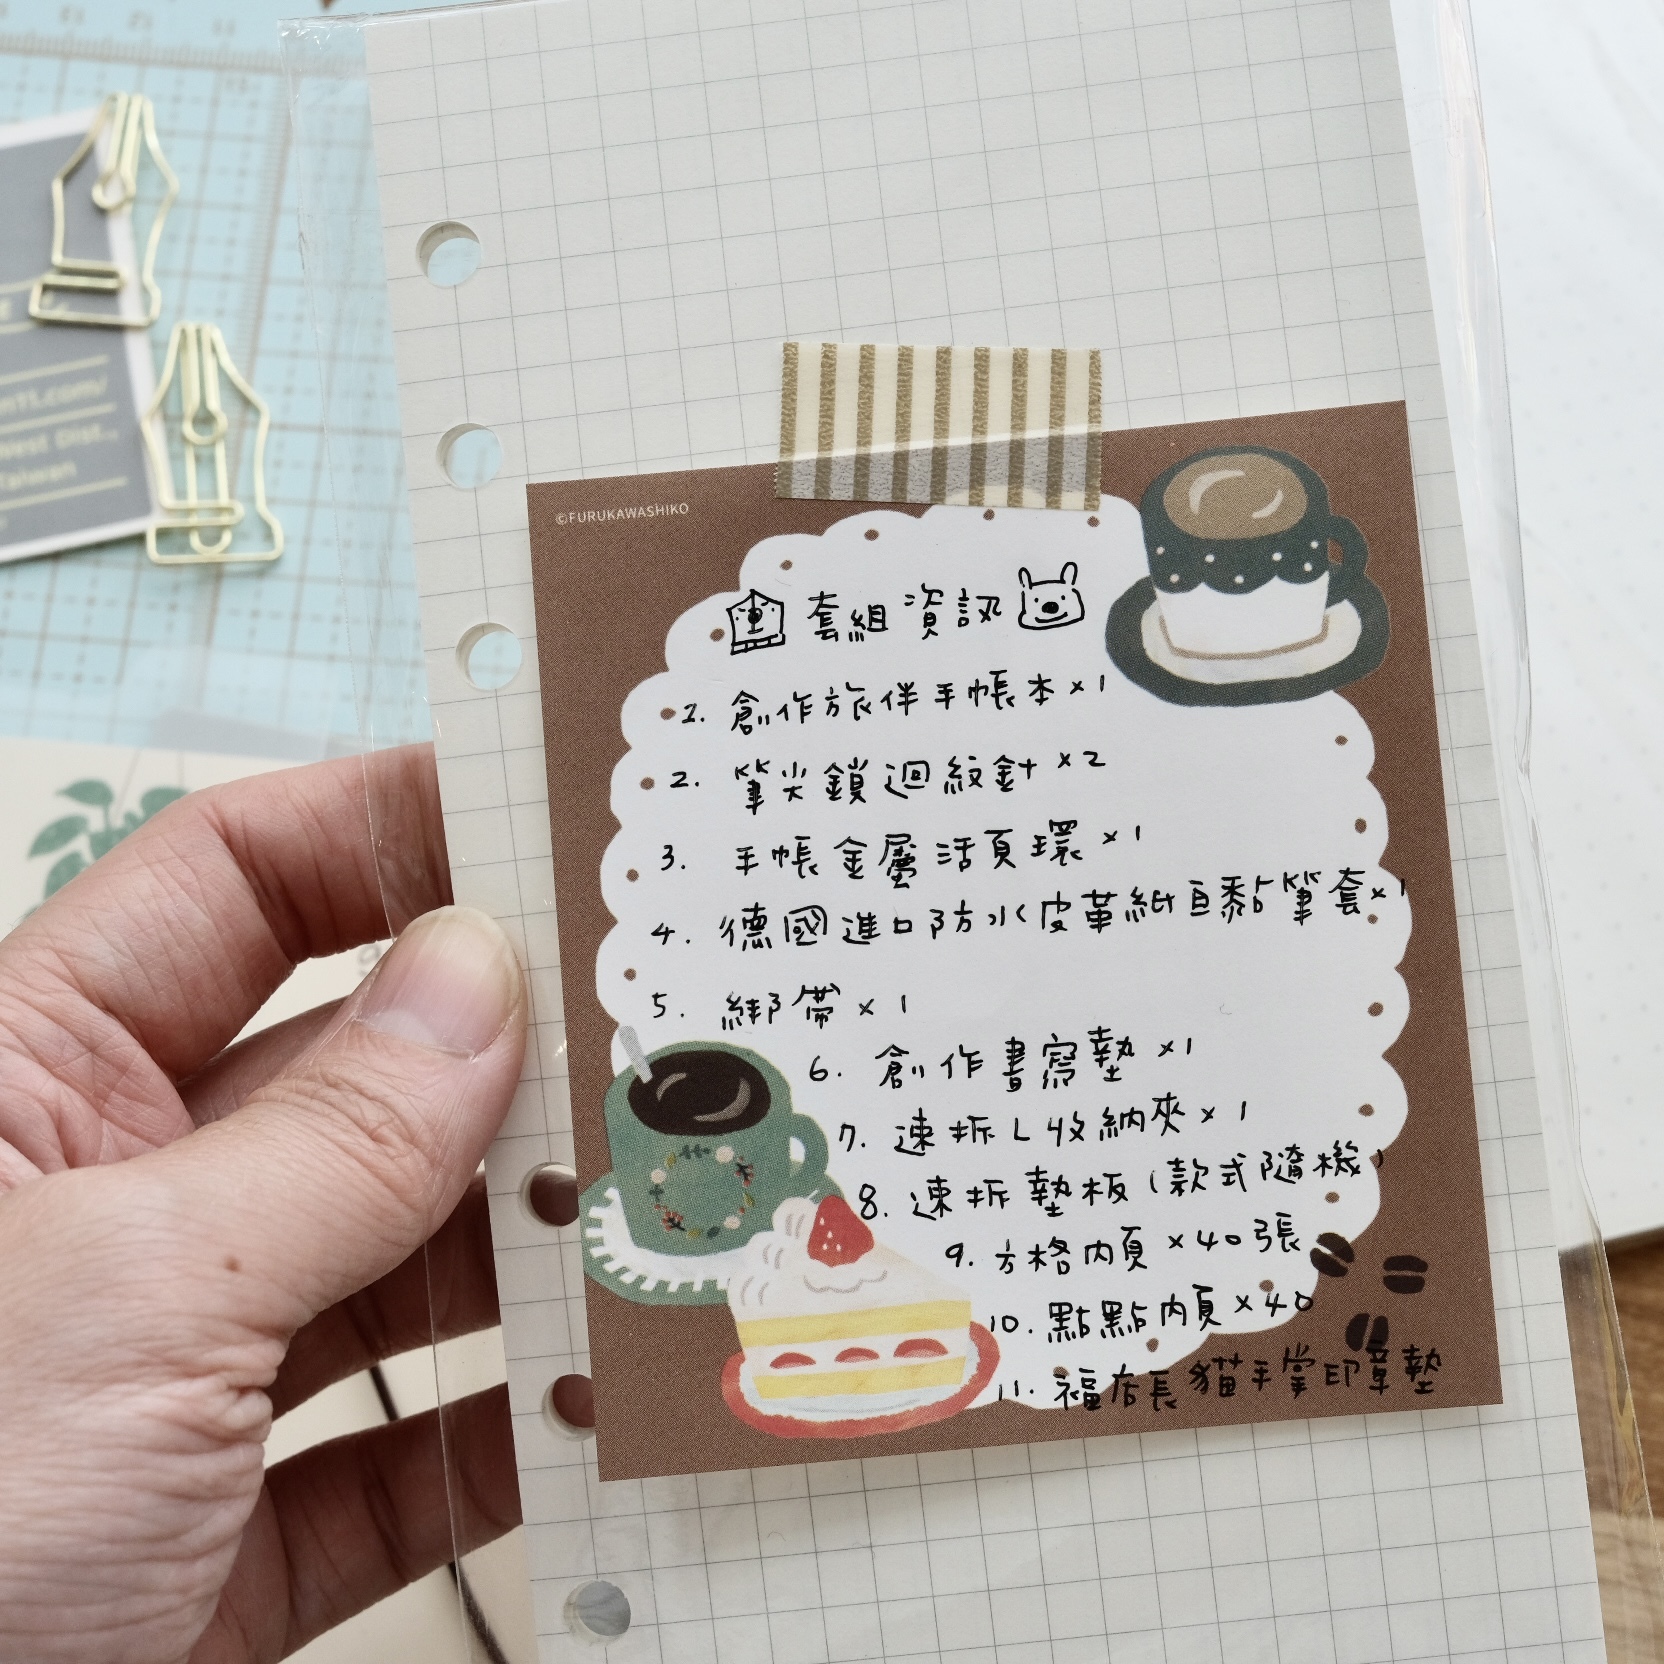 m11.com/
West Dist.,
Taiwan
©FURUKAWASHIKO
套組資訊
1. 創作旅伴手帳本 x 1
2. 筆尖鎖迴紋針 x 2
3. 手帳金屬活頁環 x 1
4. 德國進口防水皮革紙自黏筆套 x 1
5. 綁帶 x 1
6. 創作書寫墊 x 1
7. 速拆L收納夾 x 1
8. 速拆墊板 (款式隨機)
9. 方格內頁 x 40張
10. 點點內頁 x 40
11. 福店長貓手掌印章墊